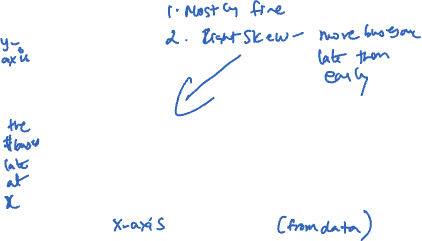 1. Mostly fine
2. Right Skew - more buses are
late then
early
y-
axis
the
# buses
late
at
x
x-axis (from data)